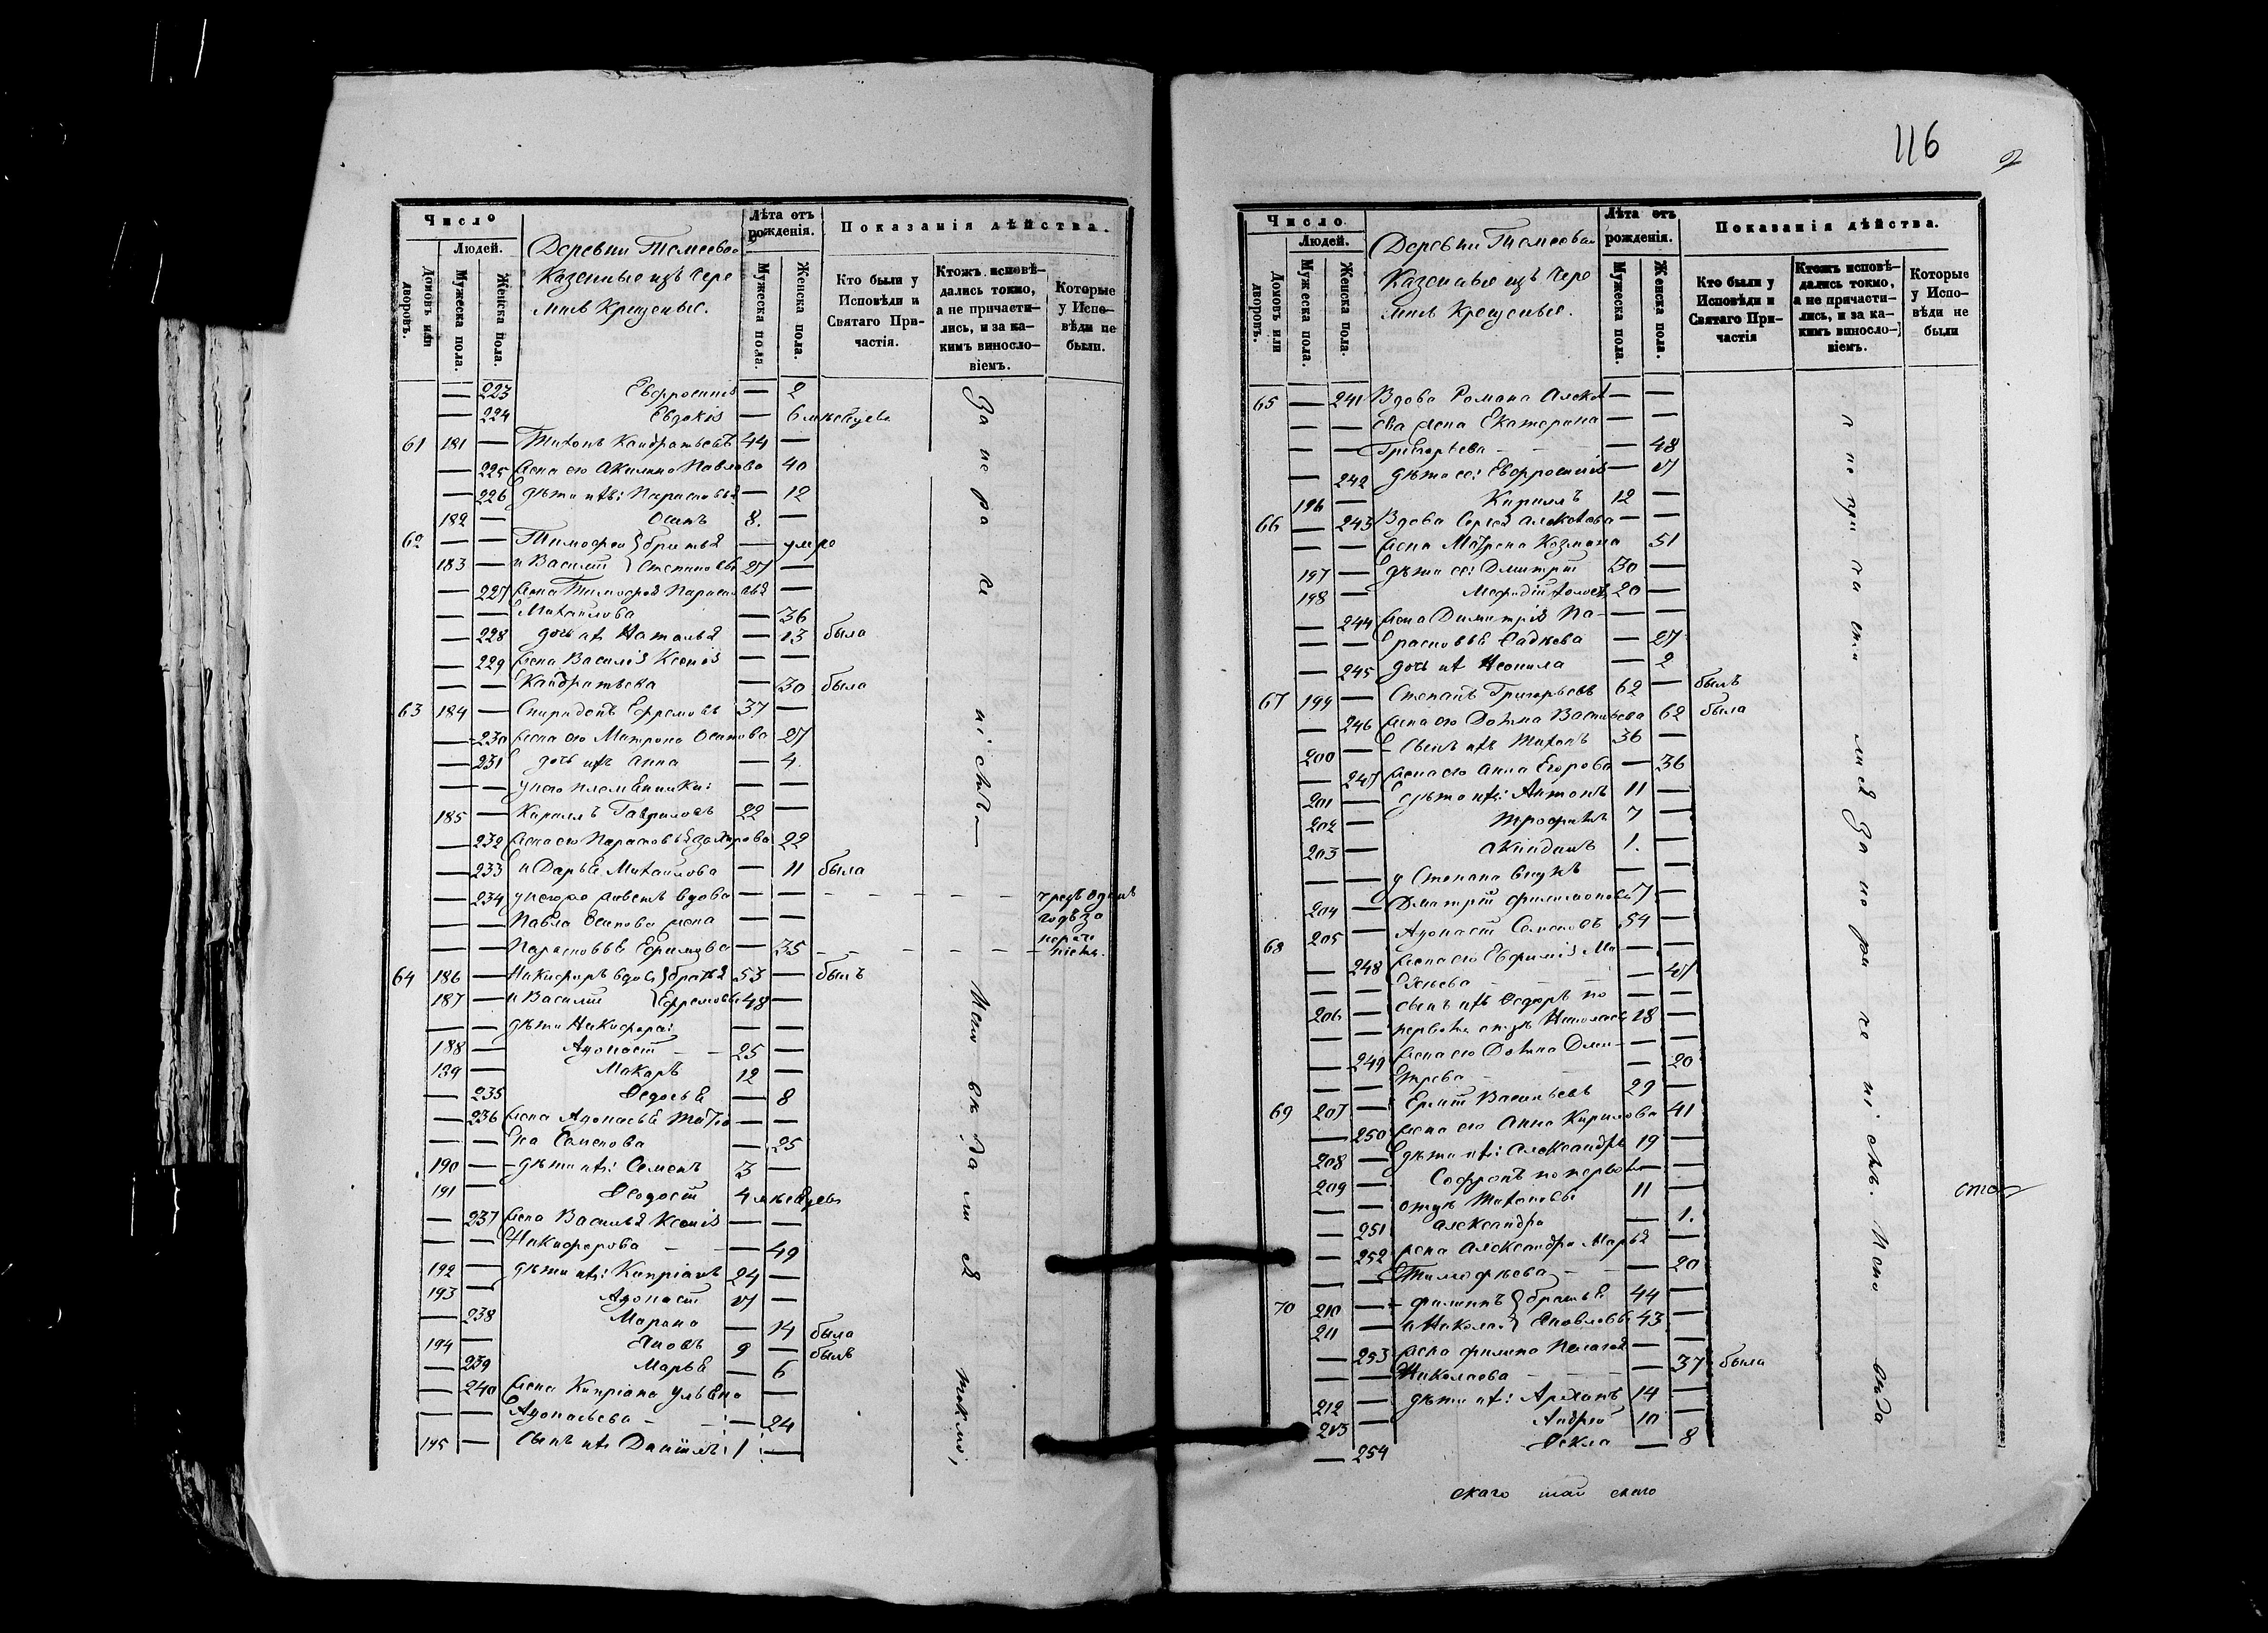 116
Число
Людей.
Домовъ или дворовъ.
Мужеска пола.
Женска пола.
Деревни
Казенные изъ Чере
мисъ Крещеные.
Лѣта отъ рожденія.
Мужеска пола.
Женска пола.
Показанія дѣйства.
Кто были у Исповѣди и Святаго Причастія.
Ктожъ исповѣдались токмо, а не причастились, и за какимъ винословіемъ.
Которые у Исповѣди не были.
— 223 Евфросинія — 2
— 224 Евдокія — 6 мѣсяцевъ
61 181 — Тихонъ Кандратьевъ 44 —
— 225 жена его Акилина Павлова 40
— 226 дѣти ихъ: Парасковья — 12
182 — Осипъ 8. —
62 — — Тимофей } братья — умре
183 — и Василій } Степановы 27 —
— 227 жена Тимофея Парасковья
— — Михайлова — 36
— 228 дочь ихъ Наталья — 13 была
— 229 жена Василія Ксенія — —
— — Кандратьева — 30 была
63 184 — Спиридонъ Ефремовъ 37 —
— 230 жена его Матрона Осипова 27
— 231 дочь ихъ Анна — 4.
— — у него племянники: — —
185 — Кириллъ Гавриловъ 22 —
— 232 жена его Парасковья Захарова 22
— 233 и Дарья Михайлова — 11 была
— 234 у него же живетъ вдова — —
— — Павла Осипова жена — —
— — Парасковья Ефимова — 35
64 186 — Никифоръ вдов } братья 53 — былъ
187 — и Василій } Ефремовы 48 —
— — дѣти Никифора: — —
188 — Афонасій — 25 —
189 — Макаръ 12 —
— 235 Федосья — 8
— 236 жена Афонасья Татья — —
— — на Семенова — 25
190 — дѣти ихъ: Семенъ 3 —
191 — Феодосій 4 мѣсяцевъ
— 237 жена Василья Ксенія — —
— — Никифорова — 49
192 — дѣти ихъ: Кипріанъ 24 —
193 — Афонасій 17 —
— 238 Марина — 14 была
194 — Яковъ 9 — былъ
— 239 Марья — 6
— 240 жена Кипріана Ульяна —
— — Афонасьева — 24
195 — сынъ ихъ Даніилъ 1 —
За нераченіемъ
Исповѣдались токмо,
Число
Людей.
Домовъ или дворовъ.
Мужеска пола.
Женска пола.
Деревни
Казенные изъ Чере
мисъ Крещеные.
Лѣта отъ рожденія.
Мужеска пола.
Женска пола.
Показанія дѣйства.
Кто были у Исповѣди и Святаго Причастія
Ктожъ исповѣдались токмо, а не причастились, и за какимъ винословіемъ.
Которые у Исповѣди не были
65 — 241 Вдова Романа Алексѣ — —
— — ева жена Екатерина — —
— — Григорьева — 48
— 242 дѣти ее: Евфросинія — 17
196 — Кириллъ 12 —
66 — 243 Вдова Сергея Алексѣева — —
— — жена Матрена Козмина 51
197 — дѣти ее: Дмитрій 30 —
198 — 20 —
— 244 жена Димитрія Па- — —
— — расковья — 27
— 245 дочь ихъ Неонила — 2
67 199 — Степанъ Григорьевъ 62 — былъ
— 246 жена его Домна Васильева 62 была
200 — сынъ ихъ Тихонъ 36 —
— 247 жена его Анна Егорова — 36
201 — дѣти ихъ: Антонъ 11 —
202 — Трофимъ 7 —
203 — Акиндинъ 1. —
— — у Степана внукъ — —
204 — Дмитрій Филимоновъ 7 —
68 205 — Афонасій Семеновъ 54 —
— 248 жена его Евфимія Ма- — —
206 — сынъ ихъ Федоръ по — —
— — первомъ отцѣ Николаевъ 18 —
— 249 жена его Домна Дми- — —
— — трева — 20
69 207 — Васильевъ 29 —
— 250 жена его Анна Кирилова 41
208 — дѣти ихъ: Александръ 19 —
209 — Софронъ по первомъ — —
— — отцѣ 11 —
— 251 Александра — 1.
— 252 жена Александра Марья —
— — Тимофѣева — 20
70 210 — Филипъ } братья 44 —
211 — и Николай } Яковлевы 43 —
— 253 жена Филипа Пелагея —
— — Николаева — 37 была
212 — дѣти ихъ: 14 —
213 — Андрей 10 —
— 254 Фекла — 8
а не причастились За нераченіемъ. Исповѣда